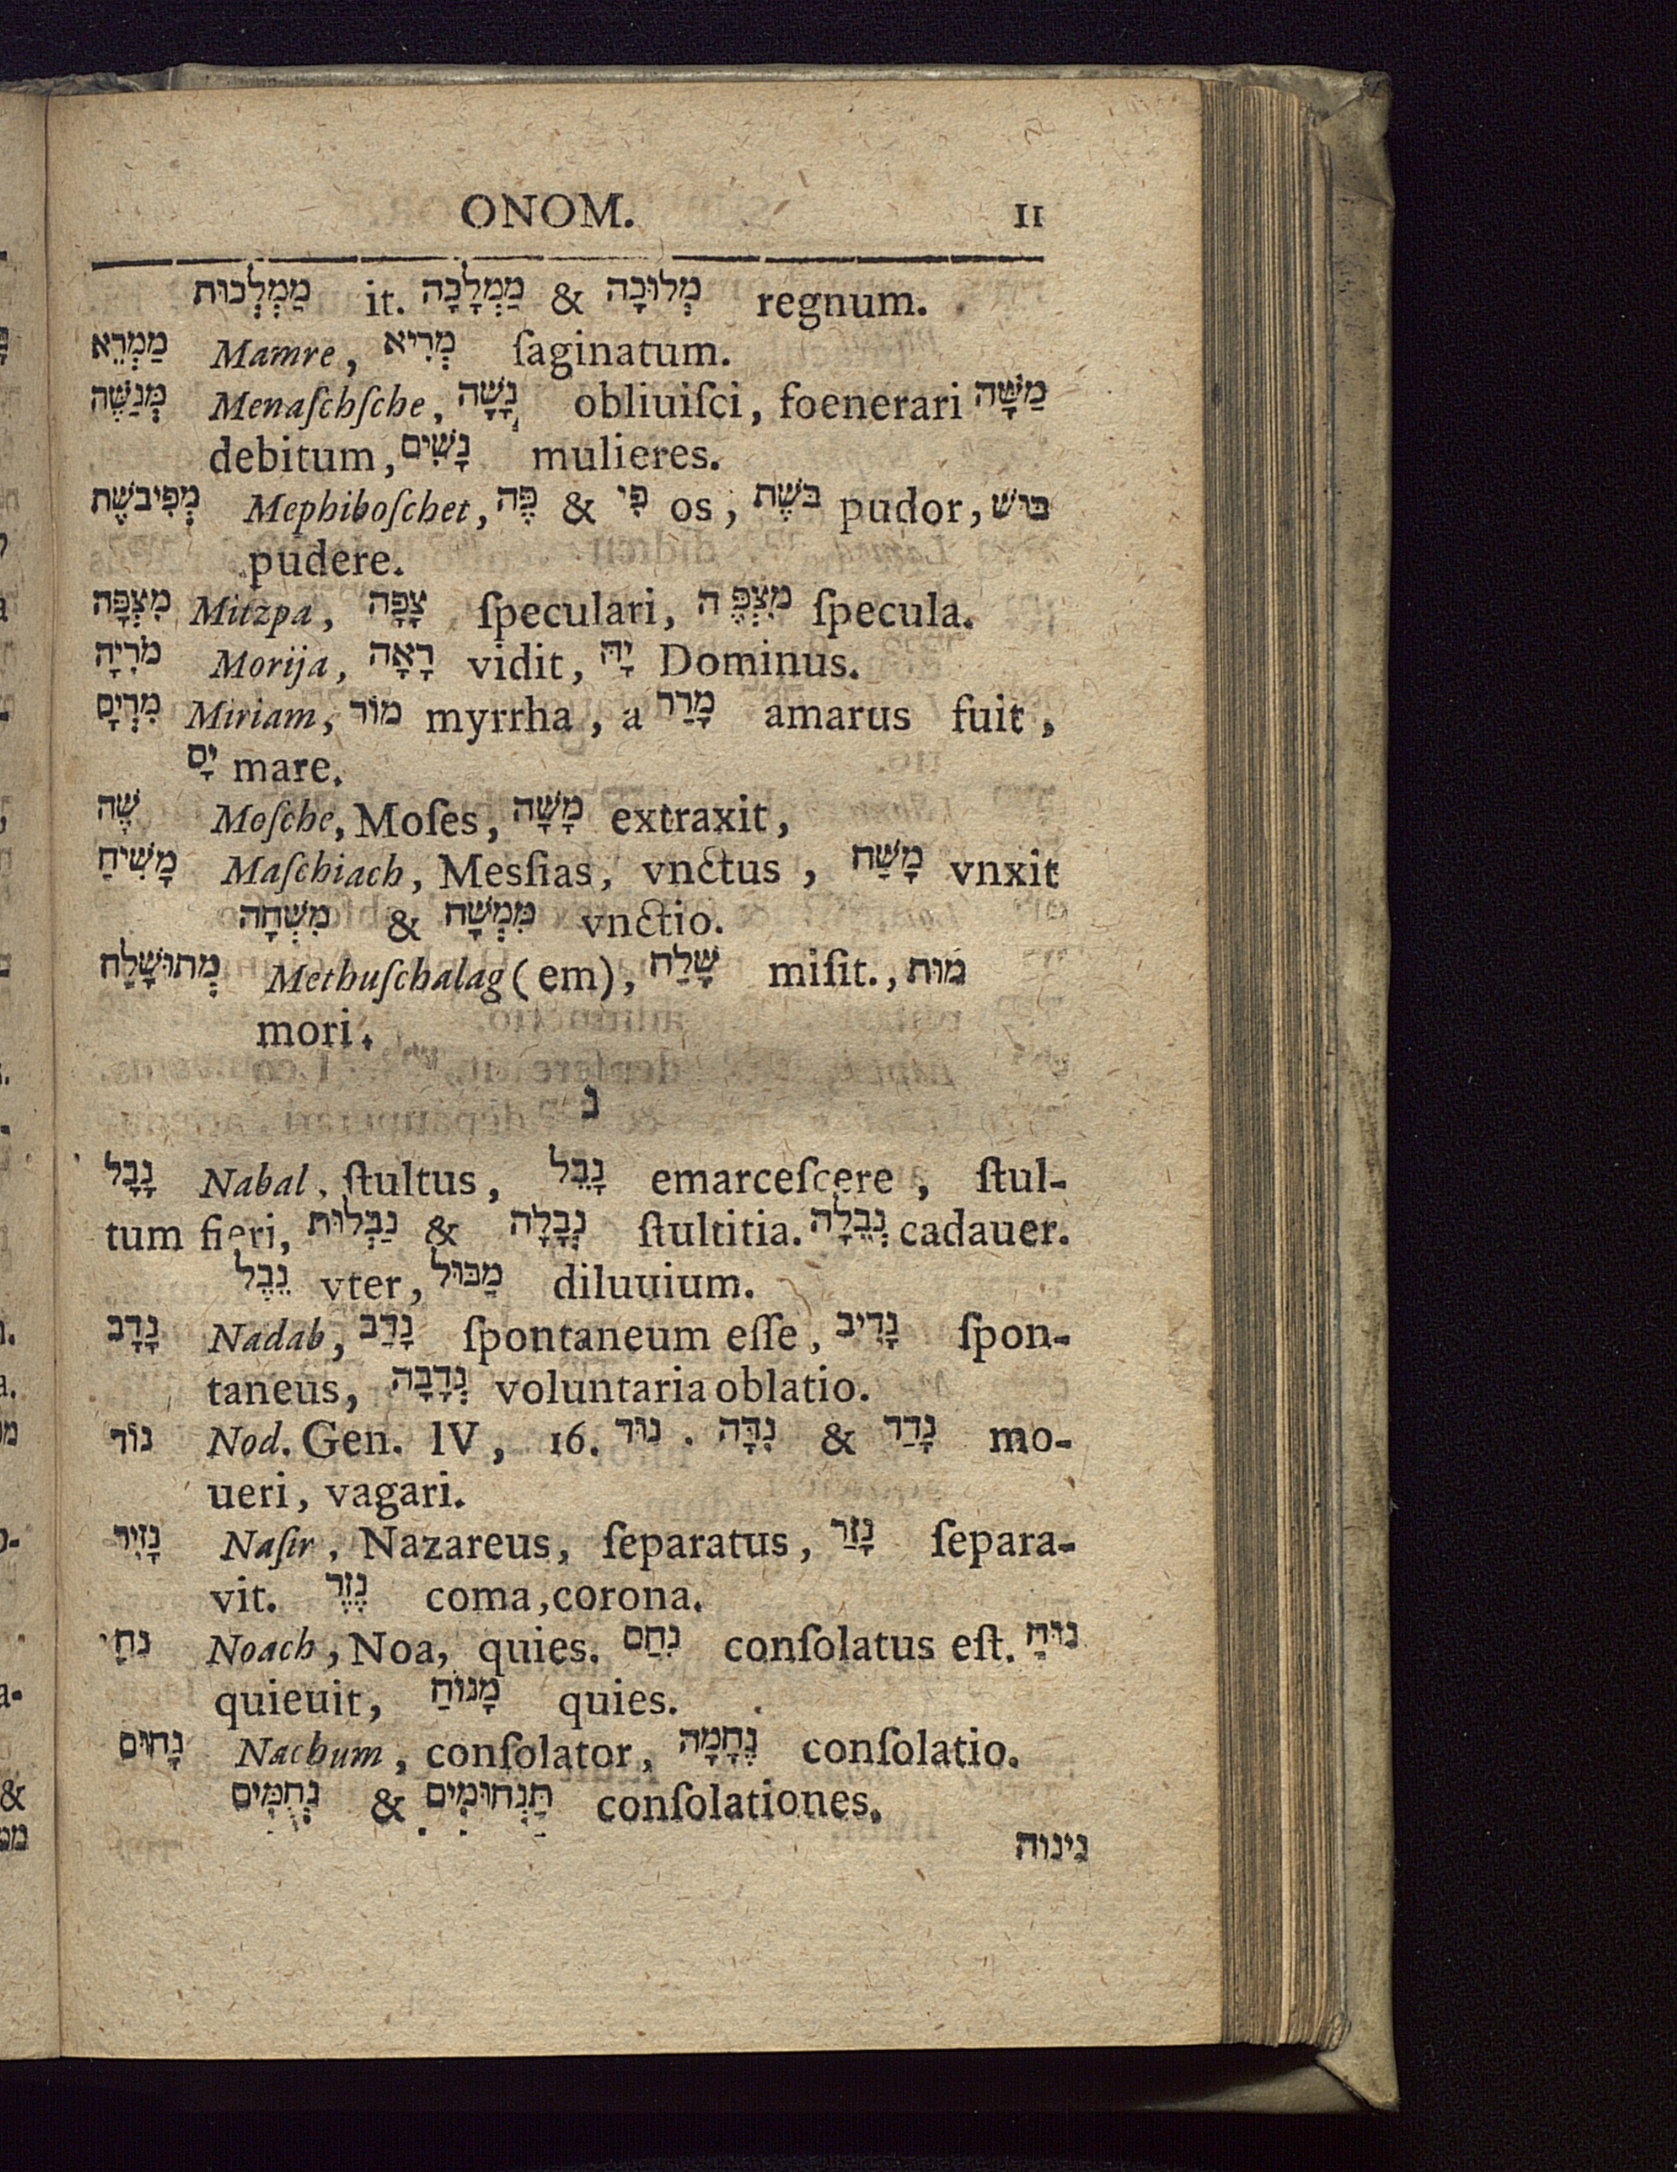 ONOM. 11
מַמְלְכוּת it. מַמְלָכָה & מְלוּכָה regnum.
מַמְרֵא Mamre, מְרִיא ſaginatum.
מְנַשֶּׁה Menaſchſche, נָשָׁה obliuiſci, foenerari מַשָּׁה
debitum, נָשִׁים mulieres.
מְפִיבֹשֶׁת Mephiboſchet, פֶּה & פִּי os, בֹּשֶׁת pudor, בּוּשׁ
pudere.
מִצְפָּה Mitzpa, צָפָה ſpeculari, מִצְפֶּה ſpecula.
מֹרִיָּה Morija, רָאָה vidit, יָהּ Dominus.
מִרְיָם Miriam, מוֹר myrrha, a מָרַר amarus fuit,
יָם mare.
שֶׁה Moſche, Moſes, מָשָׁה extraxit,
מָשִׁיחַ Maſchiach, Meſſias, vnctus, מָשַׁח vnxit
מִשְׁחָה & מִמְשַׁח vnctio.
מְתוּשָׁלַח Methuſchalag (em), שָׁלַח miſit., מוּת
mori.
נ
נָבָל Nabal, ſtultus, נָבֵל emarceſcere, ſtul-
tum fieri, נַבְלוּת & נְבָלָה ſtultitia. נְבֵלָה cadauer.
נֵבֶל vter, מַבּוּל diluuium.
נָדָב Nadab, נָדַב ſpontaneum eſſe, נָדִיב ſpon-
taneus, נְדָבָה voluntaria oblatio.
נוֹד Nod. Gen. IV, 16. נוּד. נִדָּה & נָדַד mo-
ueri, vagari.
נָזִיר Naſir, Nazareus, ſeparatus, נָזַר ſepara-
vit. נֶזֶר coma, corona.
נֹחַ Noach, Noa, quies. נִחַם conſolatus eſt. נוּחַ
quieuit, מָנוֹחַ quies.
נָחוּם Nachum, conſolator, נֶחָמָה conſolatio.
נִחֻמִים & תַּנְחוּמִים conſolationes.
נִינוה